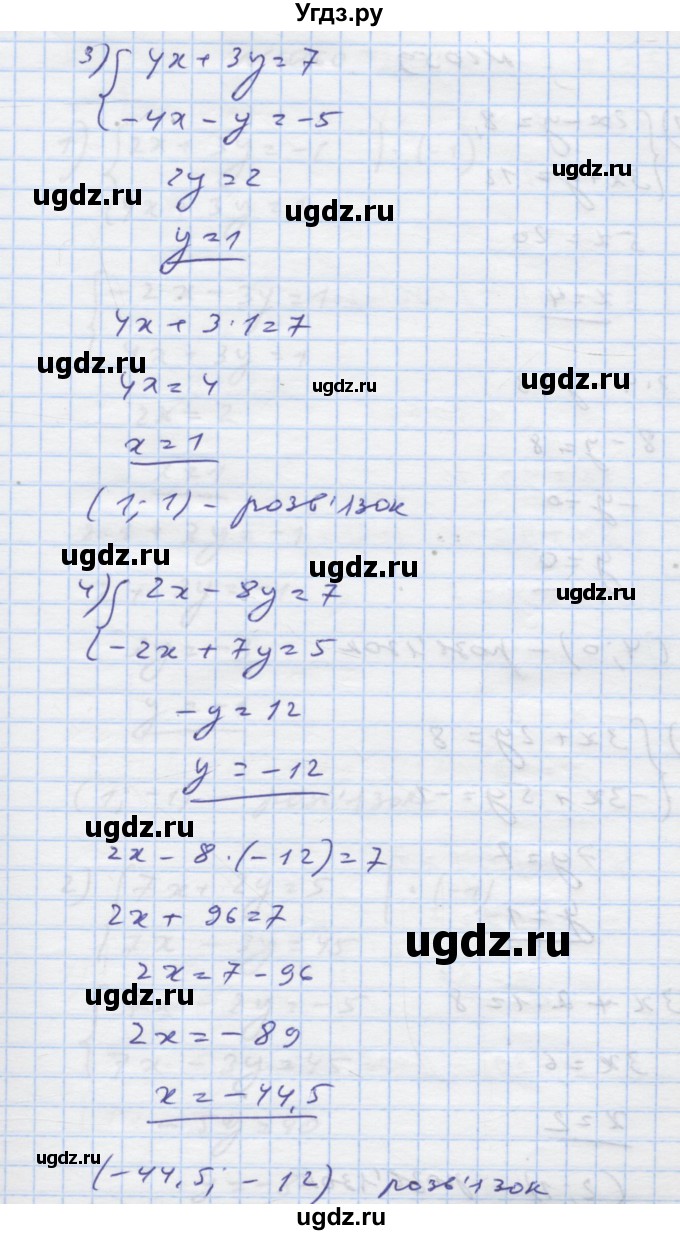 Угдз.ру
3) { 4x + 3y = 7
-4x - y = -5
2y = 2
y = 1
4x + 3 · 1 = 7
4x = 4
x = 1
(1; 1) - розв'язок
4) { 2x - 8y = 7
-2x + 7y = 5
-y = 12
y = -12
2x - 8 · (-12) = 7
2x + 96 = 7
2x = 7 - 96
2x = -89
x = -44,5
(-44,5; -12) розв'язок
ugdz.ru
ugdz.ru
ugdz.ru
ugdz.ru
ugdz.ru
ugdz.ru
ugdz.ru
ugdz.ru
ugdz.ru
ugdz.ru
ugdz.ru
ugdz.ru
ugdz.ru
ugdz.ru